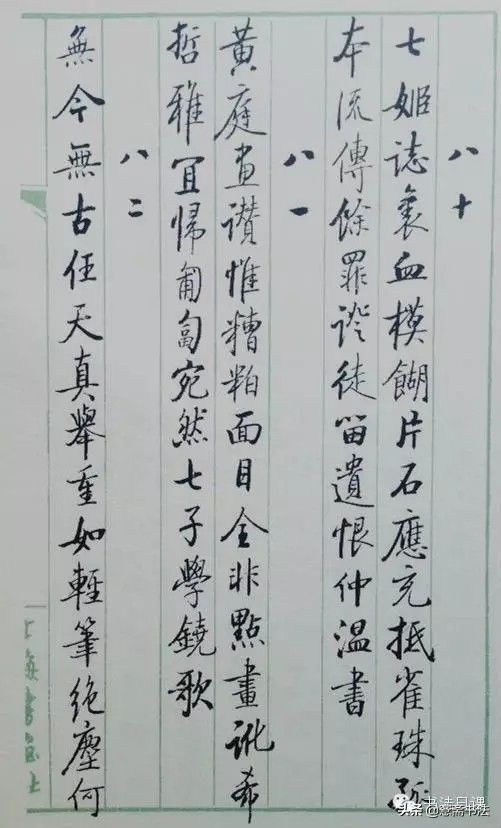 八十
七姬誌裏血模餬片石應充抵雀珠孤
本流傳餘罪證徒留遺恨仲溫書
八一
黃庭畫讚惟糟粕面目全非點畫訛希
哲雅宜歸匍匐宛然七子學鐃歌
八二
無今無古任天真舉重如輕筆絕塵何
书法日课